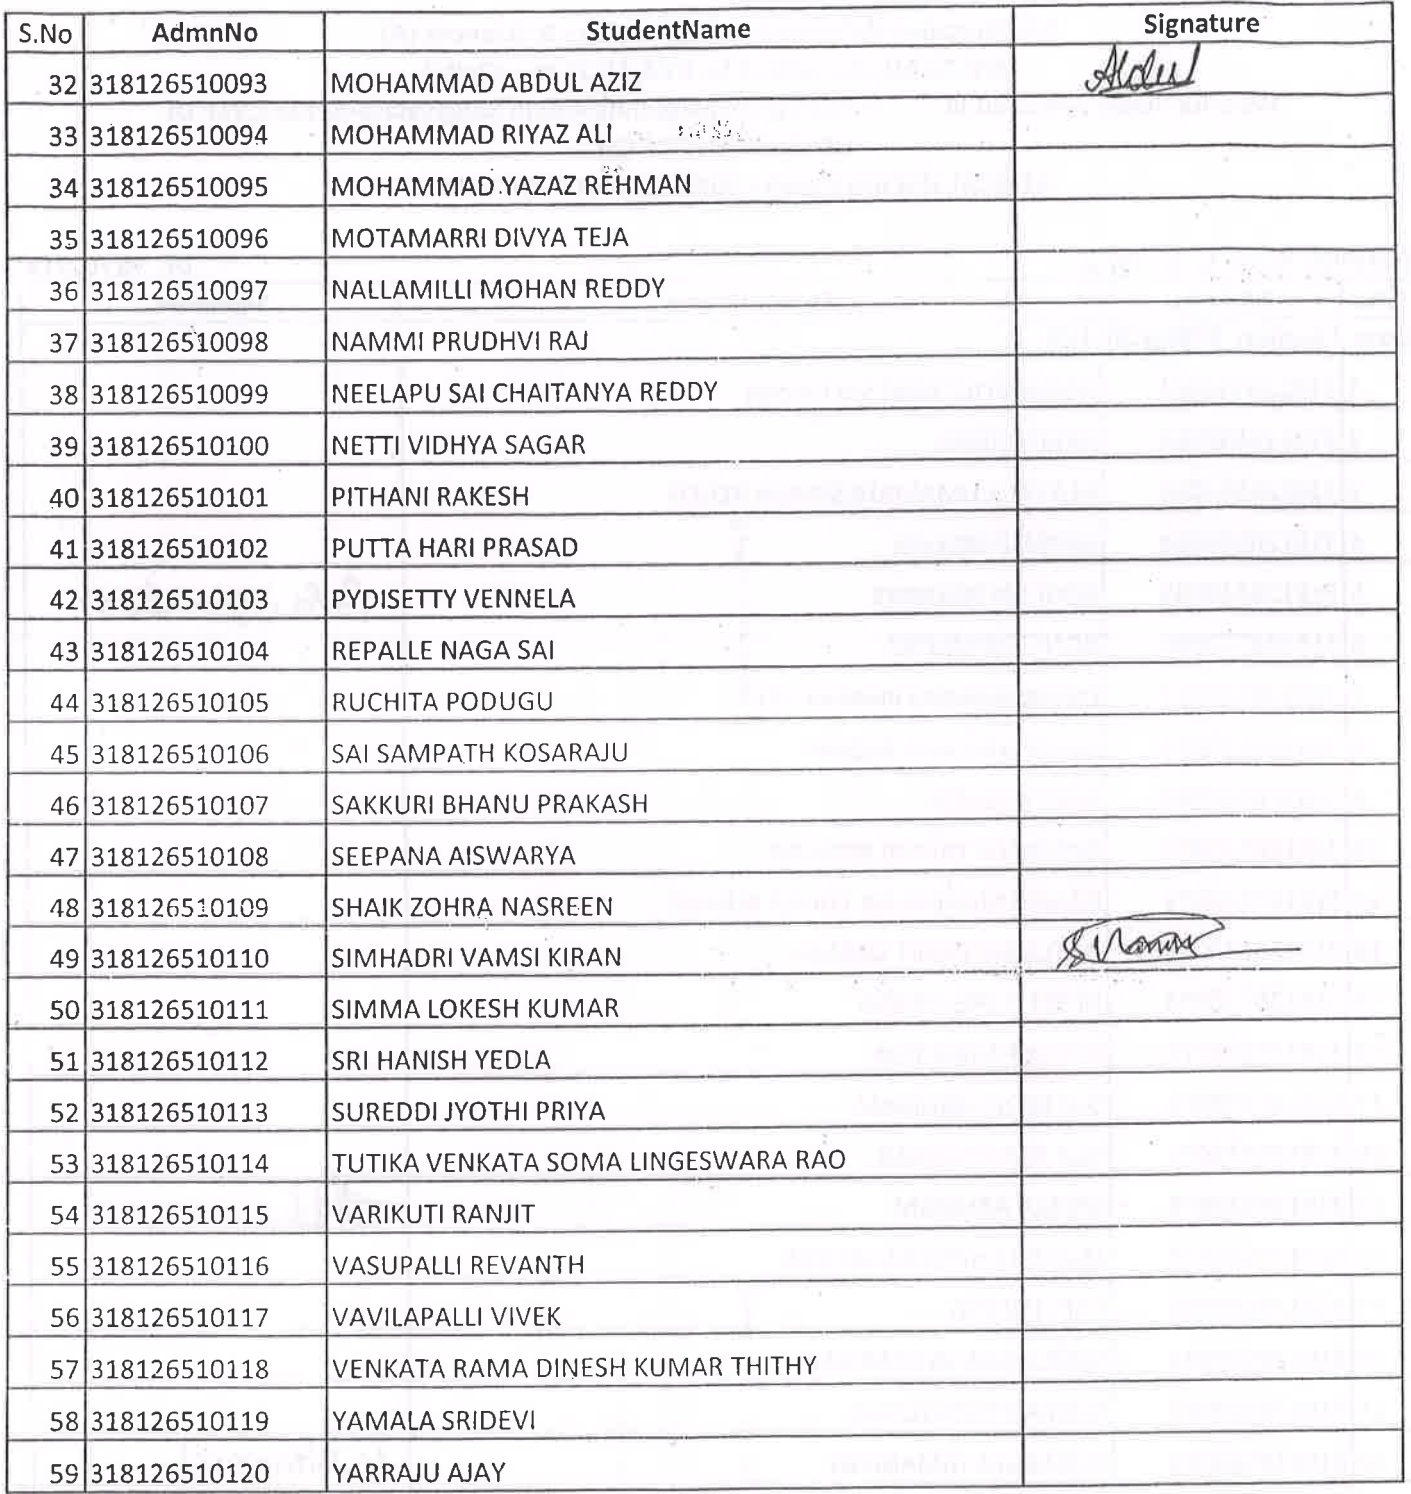 S.No AdmnNo StudentName Signature
32 318126510093 MOHAMMAD ABDUL AZIZ Abdul
33 318126510094 MOHAMMAD RIYAZ ALI
34 318126510095 MOHAMMAD YAZAZ REHMAN
35 318126510096 MOTAMARRI DIVYA TEJA
36 318126510097 NALLAMILLI MOHAN REDDY
37 318126510098 NAMMI PRUDHVI RAJ
38 318126510099 NEELAPU SAI CHAITANYA REDDY
39 318126510100 NETTI VIDHYA SAGAR
40 318126510101 PITHANI RAKESH
41 318126510102 PUTTA HARI PRASAD
42 318126510103 PYDISETTY VENNELA
43 318126510104 REPALLE NAGA SAI
44 318126510105 RUCHITA PODUGU
45 318126510106 SAI SAMPATH KOSARAJU
46 318126510107 SAKKURI BHANU PRAKASH
47 318126510108 SEEPANA AISWARYA
48 318126510109 SHAIK ZOHRA NASREEN
49 318126510110 SIMHADRI VAMSI KIRAN
50 318126510111 SIMMA LOKESH KUMAR
51 318126510112 SRI HANISH YEDLA
52 318126510113 SUREDDI JYOTHI PRIYA
53 318126510114 TUTIKA VENKATA SOMA LINGESWARA RAO
54 318126510115 VARIKUTI RANJIT
55 318126510116 VASUPALLI REVANTH
56 318126510117 VAVILAPALLI VIVEK
57 318126510118 VENKATA RAMA DINESH KUMAR THITHY
58 318126510119 YAMALA SRIDEVI
59 318126510120 YARRAJU AJAY